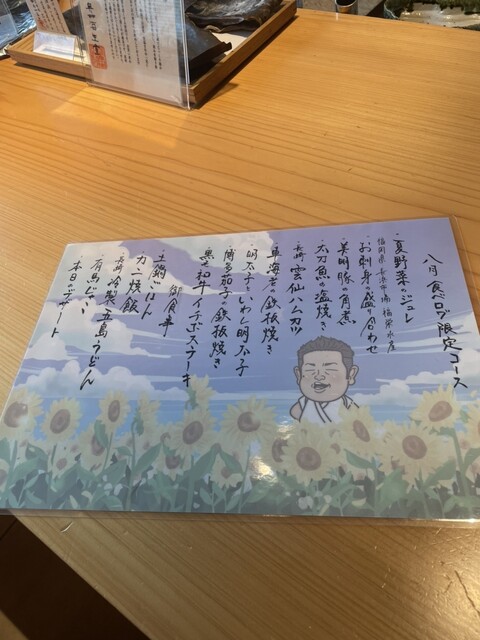 八月食べログ限定コース
・夏野菜のジュレ
福岡県 長浜市場 福栄水産
・お刺身の盛り合わせ
・美明豚の角煮
・太刀魚の塩焼き
・長崎 雲仙ハムカツ
・車海老の鉄板焼き
・明太子といわし明太子
・博多茄子の鉄板焼き
・黒毛和牛イチボステーキ
・御食事
土鍋ごはん
カニ焼飯
長崎 冷製 五島うどん
・有馬じゃこ
・本日のデザート